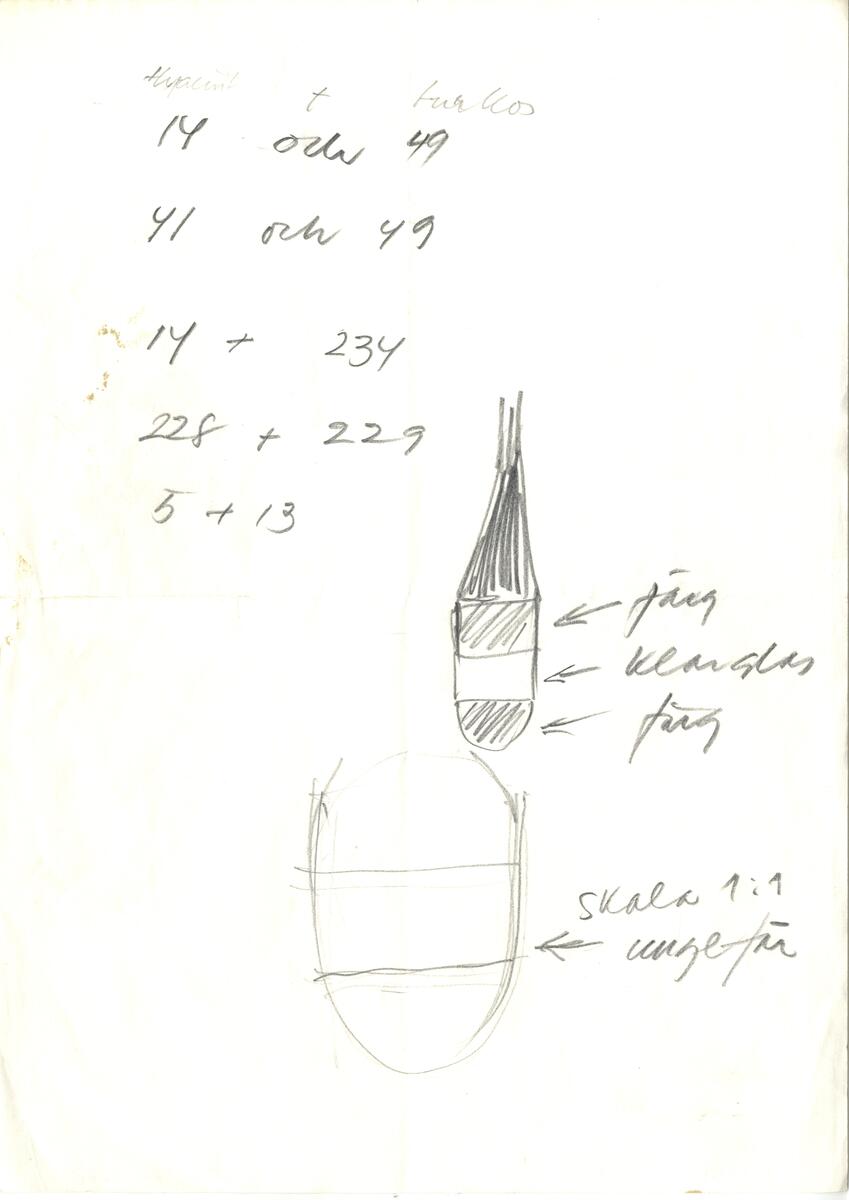 Hyacint + turkos
14 och 49
41 och 49
14 + 234
228 + 229
5 + 13
färg
klarglas
färg
skala 1:1
ungefär